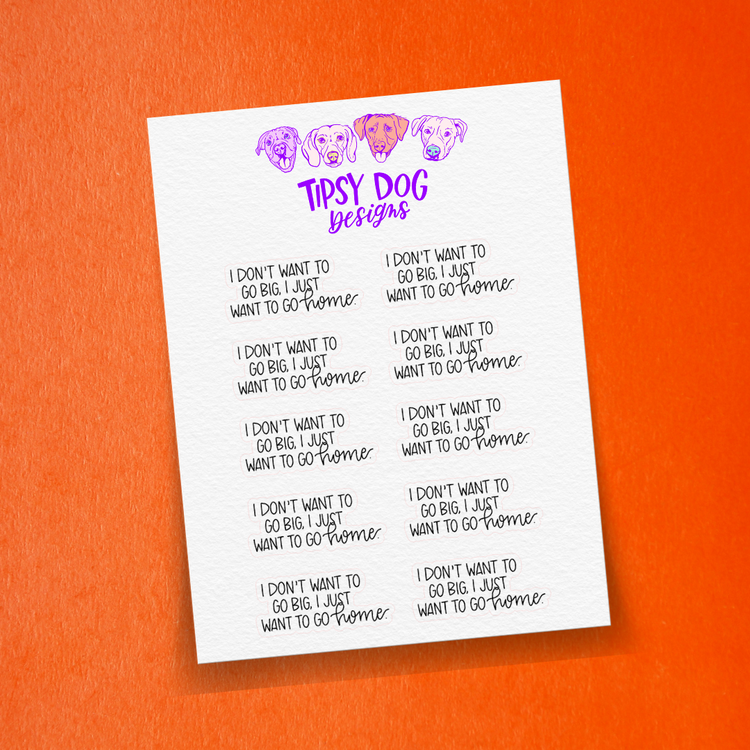 TIPSY DOG
Designs
I DON'T WANT TO
GO BIG, I JUST
WANT TO GO home.
I DON'T WANT TO
GO BIG, I JUST
WANT TO GO home.
I DON'T WANT TO
GO BIG, I JUST
WANT TO GO home.
I DON'T WANT TO
GO BIG, I JUST
WANT TO GO home.
I DON'T WANT TO
GO BIG, I JUST
WANT TO GO home.
I DON'T WANT TO
GO BIG, I JUST
WANT TO GO home.
I DON'T WANT TO
GO BIG, I JUST
WANT TO GO home.
I DON'T WANT TO
GO BIG, I JUST
WANT TO GO home.
I DON'T WANT TO
GO BIG, I JUST
WANT TO GO home.
I DON'T WANT TO
GO BIG, I JUST
WANT TO GO home.